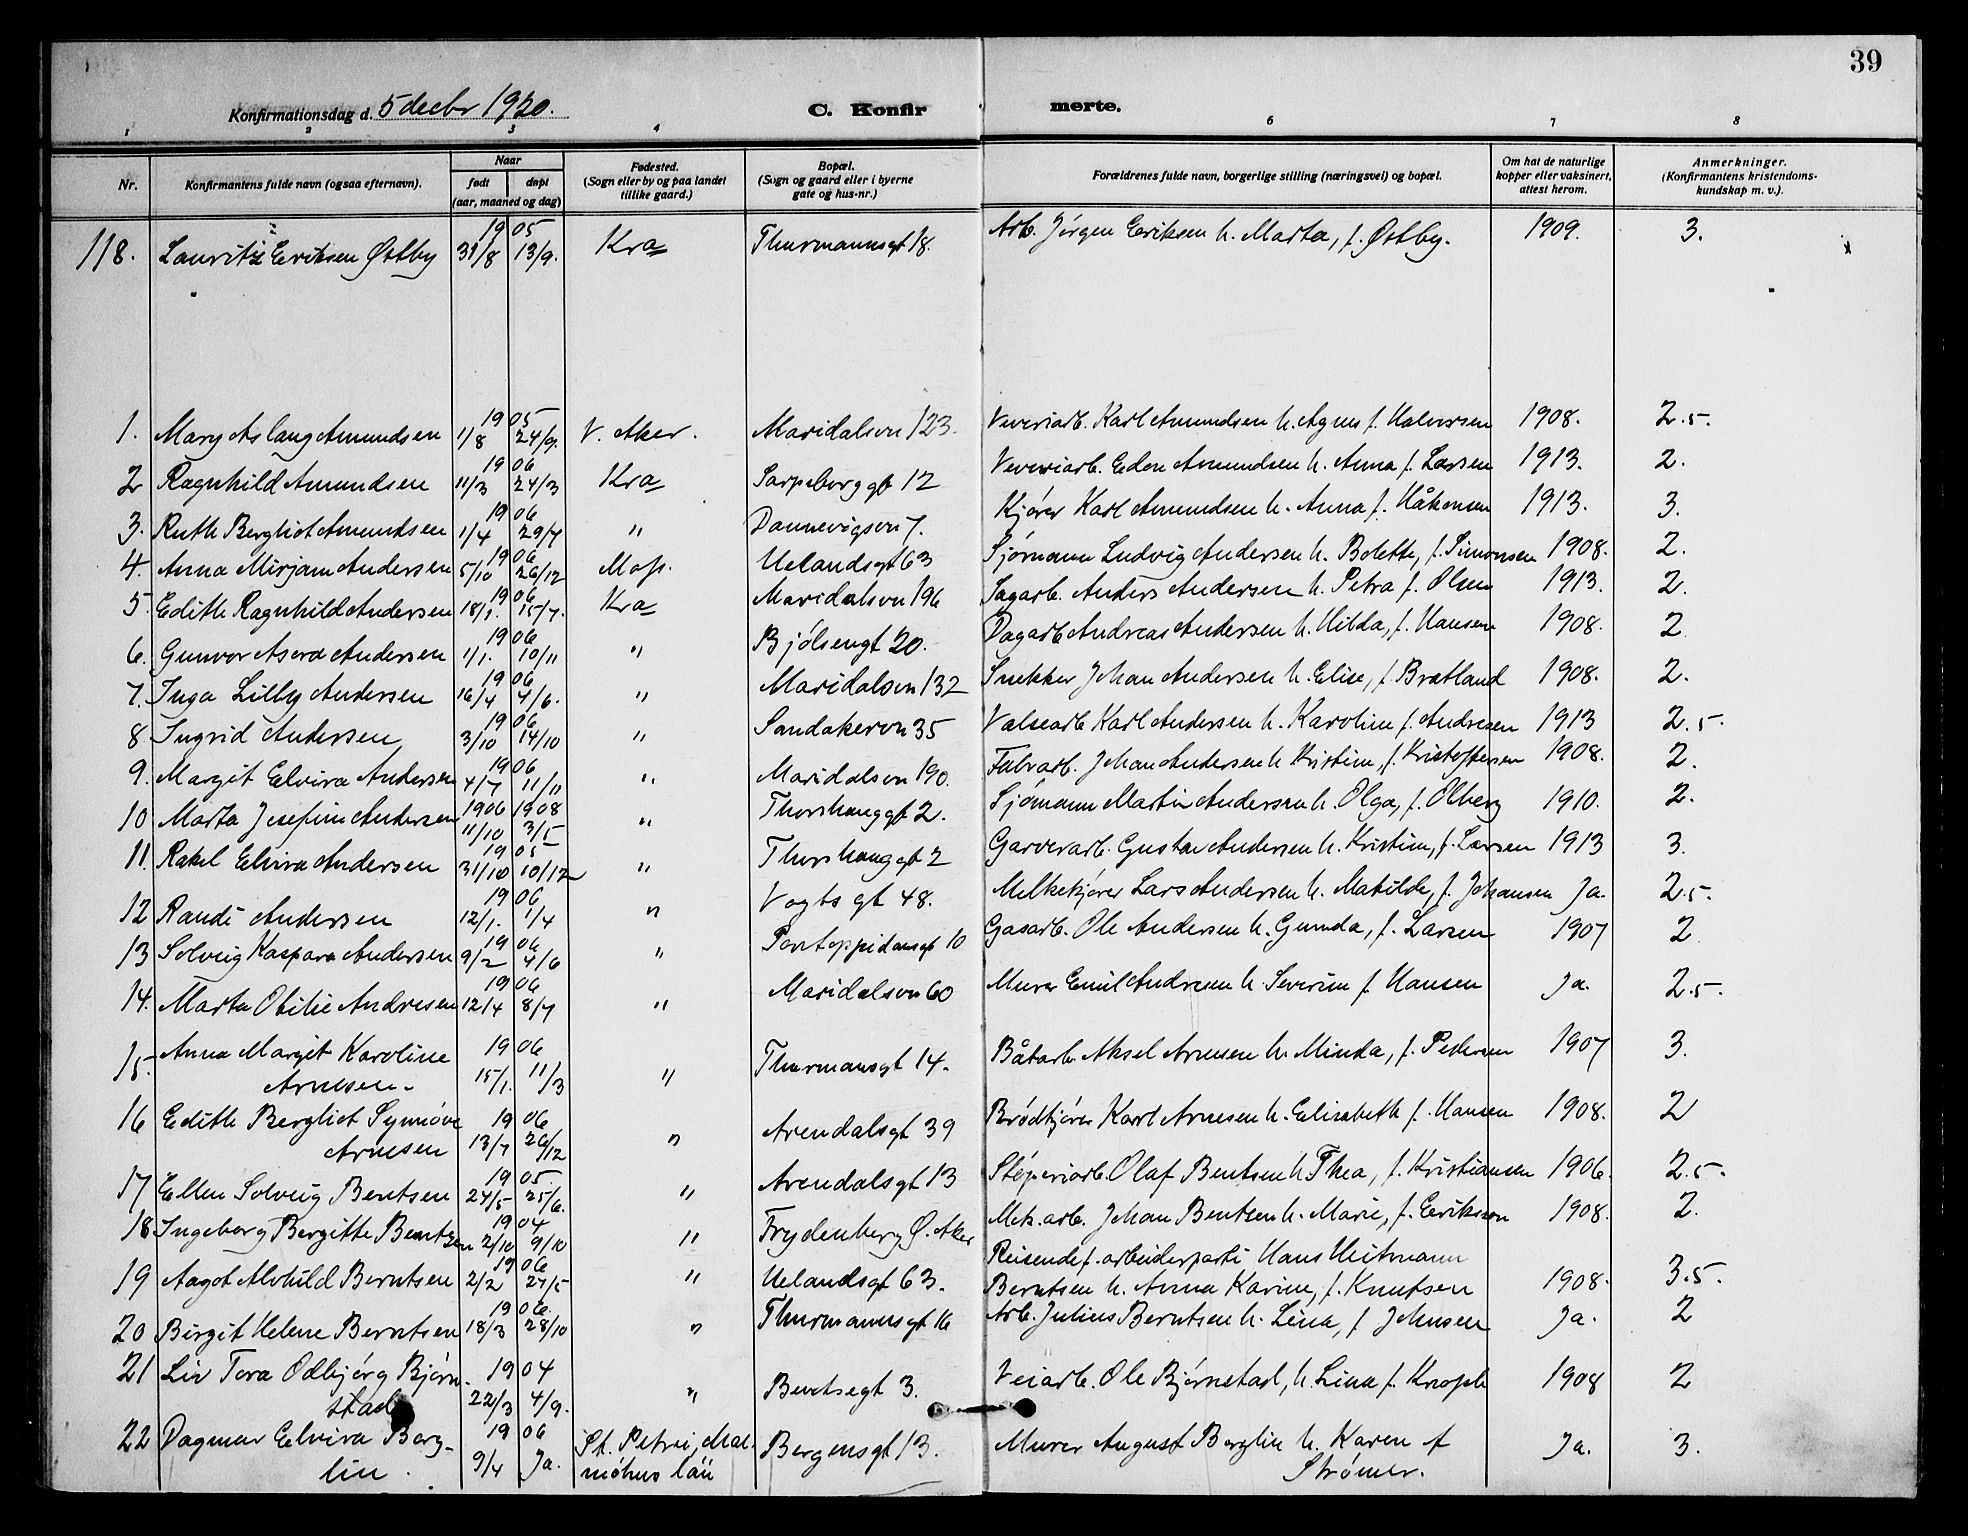 39
Konfirmationsdag d. 5 decbr 1920. C. Konfirmerte.
1 2 3 4 6 7 8
Nr. Konfirmantens fulde navn (ogsaa efternavn). Naar født døpt (aar, maaned og dag) Fødested. (Sogn eller by og paa landet tillike gaard.) Bopæl. (Sogn og gaard eller i byerne gate og hus-nr.) Forældrenes fulde navn, borgerlige stilling (næringsvei) og bopæl. Om hat de naturlige kopper eller vaksinert, attest herom. Anmerkninger. (Konfirmantens kristendomskundskap m. v.).
118. Lauritz Eriksen Østby 1905 31/8 13/9. Kra Thurmannsgt 18. Arb. Jörgen Eriksen h. Marta, f. Østby. 1909. 3.
1. Mary Aslaug Amundsen 1905 1/8 24/9. V. Aker. Maridalsvn 123. Veveriarb. Karl Amundsen h. Agnes f. Halvorsen 1908. 2.5.
2 Ragnhild Amundsen 1906 11/3 24/3 Kra Sarpsborggt 12 Veveriarb. Edon Amundsen h. Anna f. Larsen 1913. 2.
3. Ruth Bergliot Amundsen 1906 1/4 29/7 " Dannevigsvn 7. Kjörer Karl Amundsen h. Anna f. Håkonsen 1913. 3.
4. Anna Mirjam Andersen 1906 5/10 26/12 Moss. Uelandsgt 63 Sjömann Ludvig Andersen h. Bolette, f. Simonsen 1908. 2.
5. Edith Ragnhild Andersen 1906 18/1. 15/7. Kra Maridalsvn 196 Sagarb. Anders Andersen h. Petra f. Olsen 1913. 2.
6. Gunvor Asora Andersen 1906 1/1. 10/11 " Bjölsengt 20. Dagarb Andreas Andersen h. Hilda, f. Hansen 1908. 2
7. Inga Lilly Andersen 1906 16/4 4/6. " Maridalsvn 132 Snekker Johan Andersen h. Elise, f. Bratland 1908. 2.
8 Ingrid Andersen 1906 3/10 14/10 " Sandakervn 35 Valsearb Karl Andersen h. Karoline f. Andresen 1913 2.5.
9. Margit Elvira Andersen 1906 4/7 11/11 " Maridalsvn 190. Fabrarb. Johan Andersen h Kristine, f. Kristoffersen 1908. 2.
10 Marta Josefine Andersen 1906 1908 11/10 3/5 " Thorshauggt 2. Sjömann Martin Andersen h. Olga, f. Olberg 1910. 2.
11. Rakel Elvira Andersen 1905 31/10 10/12 " Thorshauggt 2 Garverarb. Gustav Andersen h. Kristine, f. Larsen 1913 3.
12 Randi Andersen 1906 12/1. 1/4 " Vogts gt 48. Melkekjörer Lars Andersen h. Matilde, f. Johansen Ja. 2.5.
13 Solveig Kaspara Andersen 1906 9/2 4/6 " Pontoppidansgt 10 Gasarb. Ole Andersen h. Gunda, f. Larsen 1907 2
14. Marta Otilie Andresen 1906 12/4 8/7 " Maridalsvn 60 Murer Emil Andresen h. Severine f. Hansen Ja. 2.5.
15. Anna Margit Karoline 1906 Thurmansgt 14. Båtarb. Aksel Arnesen h. Minda, f. Pedersen 1907 3.
Arnesen. 15/1. 11/3 "
16 Edith Bergliot Synnöve 1906 Arendalsgt 39 Brödkjörer Karl Arnesen h. Elisabeth f. Hansen 1908. 2
Arnesen 13/7 26/12 "
17 Ellen Solveig Bentsen 1905. 24/5 25/6. " Arendalsgt 13 Stöperiarb. Olaf Bentsen h. Thea, f. Kristiansen 1906. 2.5.
18 Ingeborg Bergitte Bentzen 1904 2/10 9/10 " Frydenberg Ø. Aker Mek. arb. Johan Bentsen h. Marie, f. Eriksen 1908. 2.
Reisende f. arbeiderparti Hans Heitmann
19 Aagot Alvhild Berntsen 1906 2/2 27/5 " Uelandsgt 63. Berntsen h. Anna Karine, f. Knutsen 1908. 3.5.
20 Birgit Helene Berntsen 1906. 18/3 28/10 " Thurmannsgt 16 Arb. Julius Berntsen h. Lina, f Johnsen Ja. 2
21 Liv Tora Odbjörg Björn- 1904 Bentsegt 3. Veiarb. Ole Björnstad, h. Lina f. Knoph 1908 2
stad 22/3 4/9. "
22 Dagmar Elvira Berg- 1906 St. Petri, Mal- Bergensgt 13. Murer August Berglin h. Karen f Ja. 3.
lin. 9/4 Ja. möhus län Strömer.